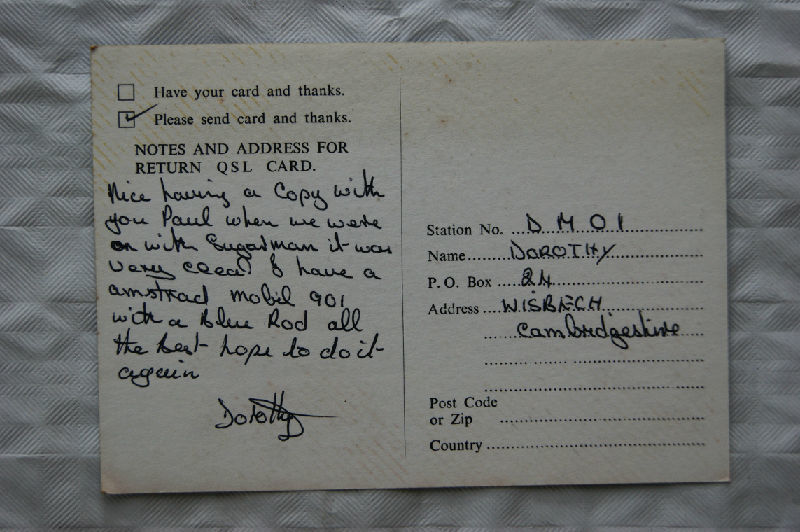 Have your card and thanks.
Please send card and thanks.
NOTES AND ADDRESS FOR
RETURN QSL CARD.
Nice having a Copy with
you Paul when we were
on with Sugarman it was
very I have a
amstrad mobil 901
with a Blue Rod all
the best hope to do it
again
Dorothy
Station No. D M 0 1
Name DOROTHY
P. O. Box 24
Address WISBECH
Cambridgeshire
Post Code
or Zip
Country